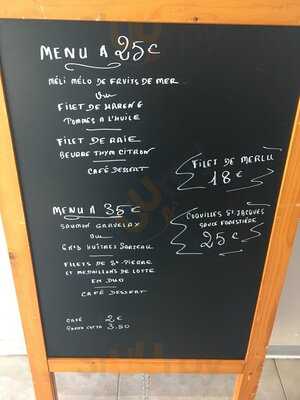 MENU A 25€
MÉLI MÉLO DE FRUITS DE MER
OU
FILET DE HARENG
POMMES A L'HUILE
FILET DE RAIE
BEURRE THYM CITRON
CAFÉ DESSERT
FILET DE MERLU
18€
MENU A 35€
SAUMON GRAVELAX
OU
6 N°3 HUÎTRES SARZEAU
FILETS DE St-PIERRE
ET MEDAILLONS DE LOTTE
EN DUO
CAFÉ DESSERT
COQUILLES St JACQUES
SAUCE FORESTIÈRE
25€
CAFÉ 2€
PANNA COTTA 3.50